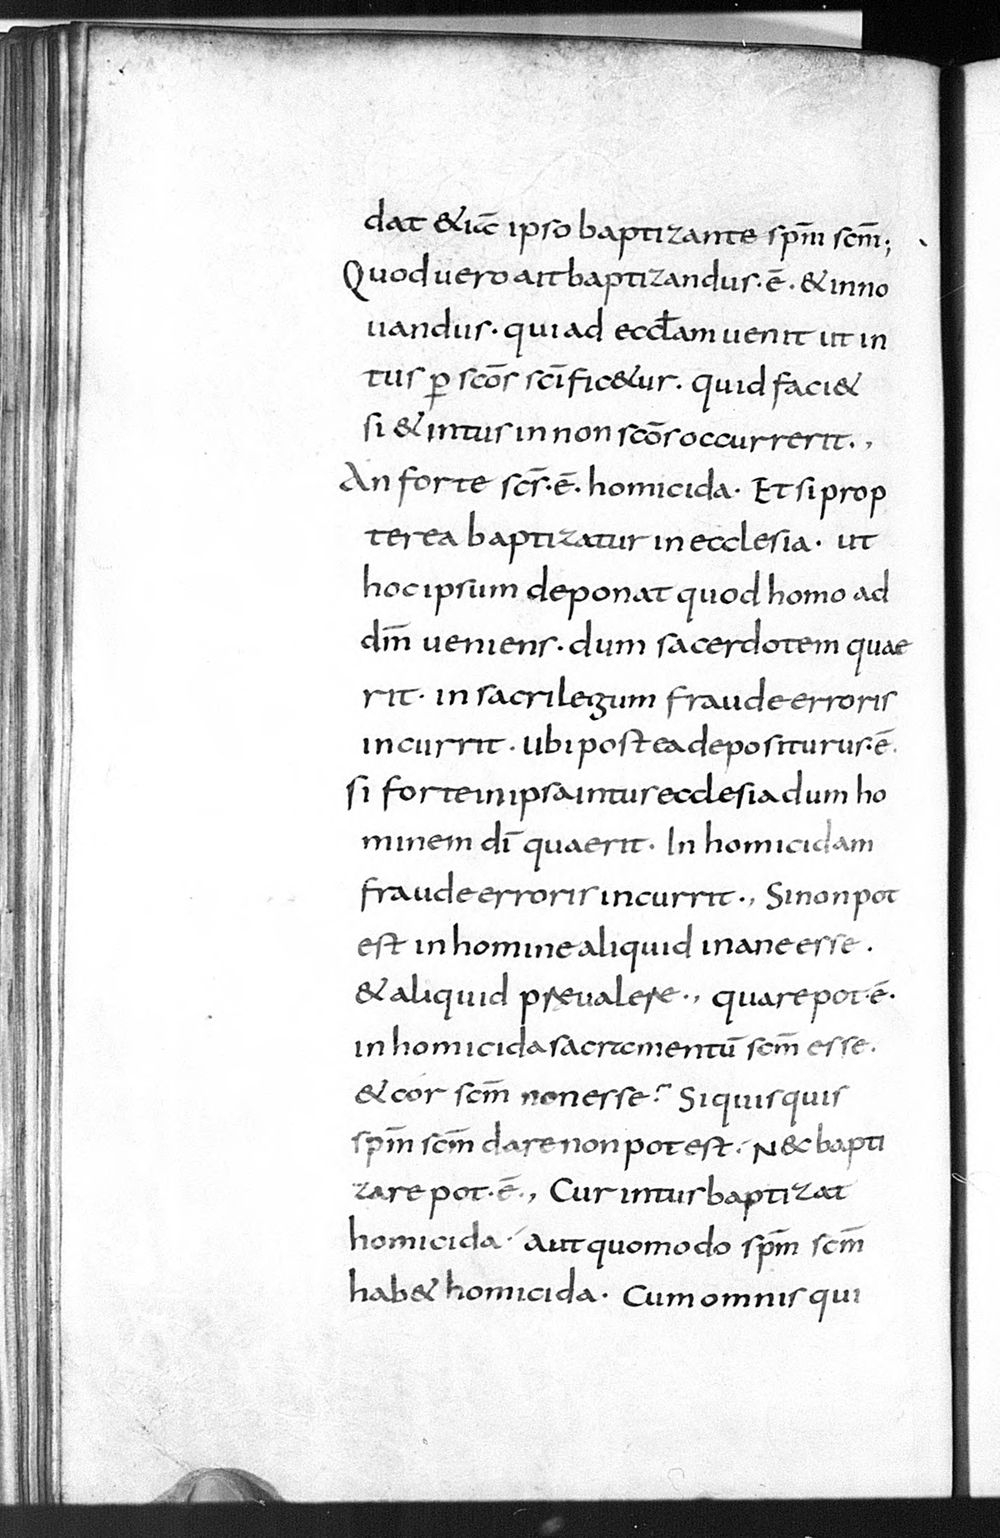 dat &iā ipso baptizante spm̄ scm̄;
Quod uero ait baptizandus·ē·&inno
uandus· qui ad eccłam uenit ut in
tus p̱ scōs scīfic&ur· quid faci&
si & intus in non scōs occurrerit·,
An forte scs̄·ē· homicida· Et si prop
terea baptizatur in ecclesia· ut
hoc ipsum deponat quod homo ad
dm̄ ueniens· dum sacerdotem quae
rit· in sacrilegum fraude erroris
incurrit· ubi postea depositurus·ē·
si forte in ipsa intus ecclesia dum ho
minem dī quaerit· In homicidam
fraude erroris incurrit·, Si non pot
est in homine aliquid inane esse·
& aliquid preualere·, quare pot·ē·
in homicida sacramentū scm̄ esse·
& cor scm̄ non esse? Si quisquis
spm̄ scm̄ dare non potest· Nec bapti
zare pot·ē·, Cur intus baptizat
homicida· Aut quomodo spm̄ scm̄
hab& homicida· Cum omnis qui